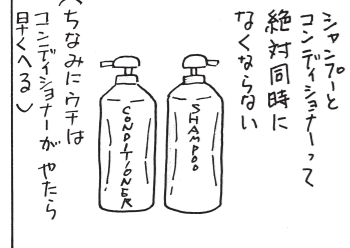 シャンプーと
コンディショナーって
絶対同時に
なくならない
SHAMPOO
CONDITIONER
(ちなみにウチは
コンディショナーが やたら
早くへる)